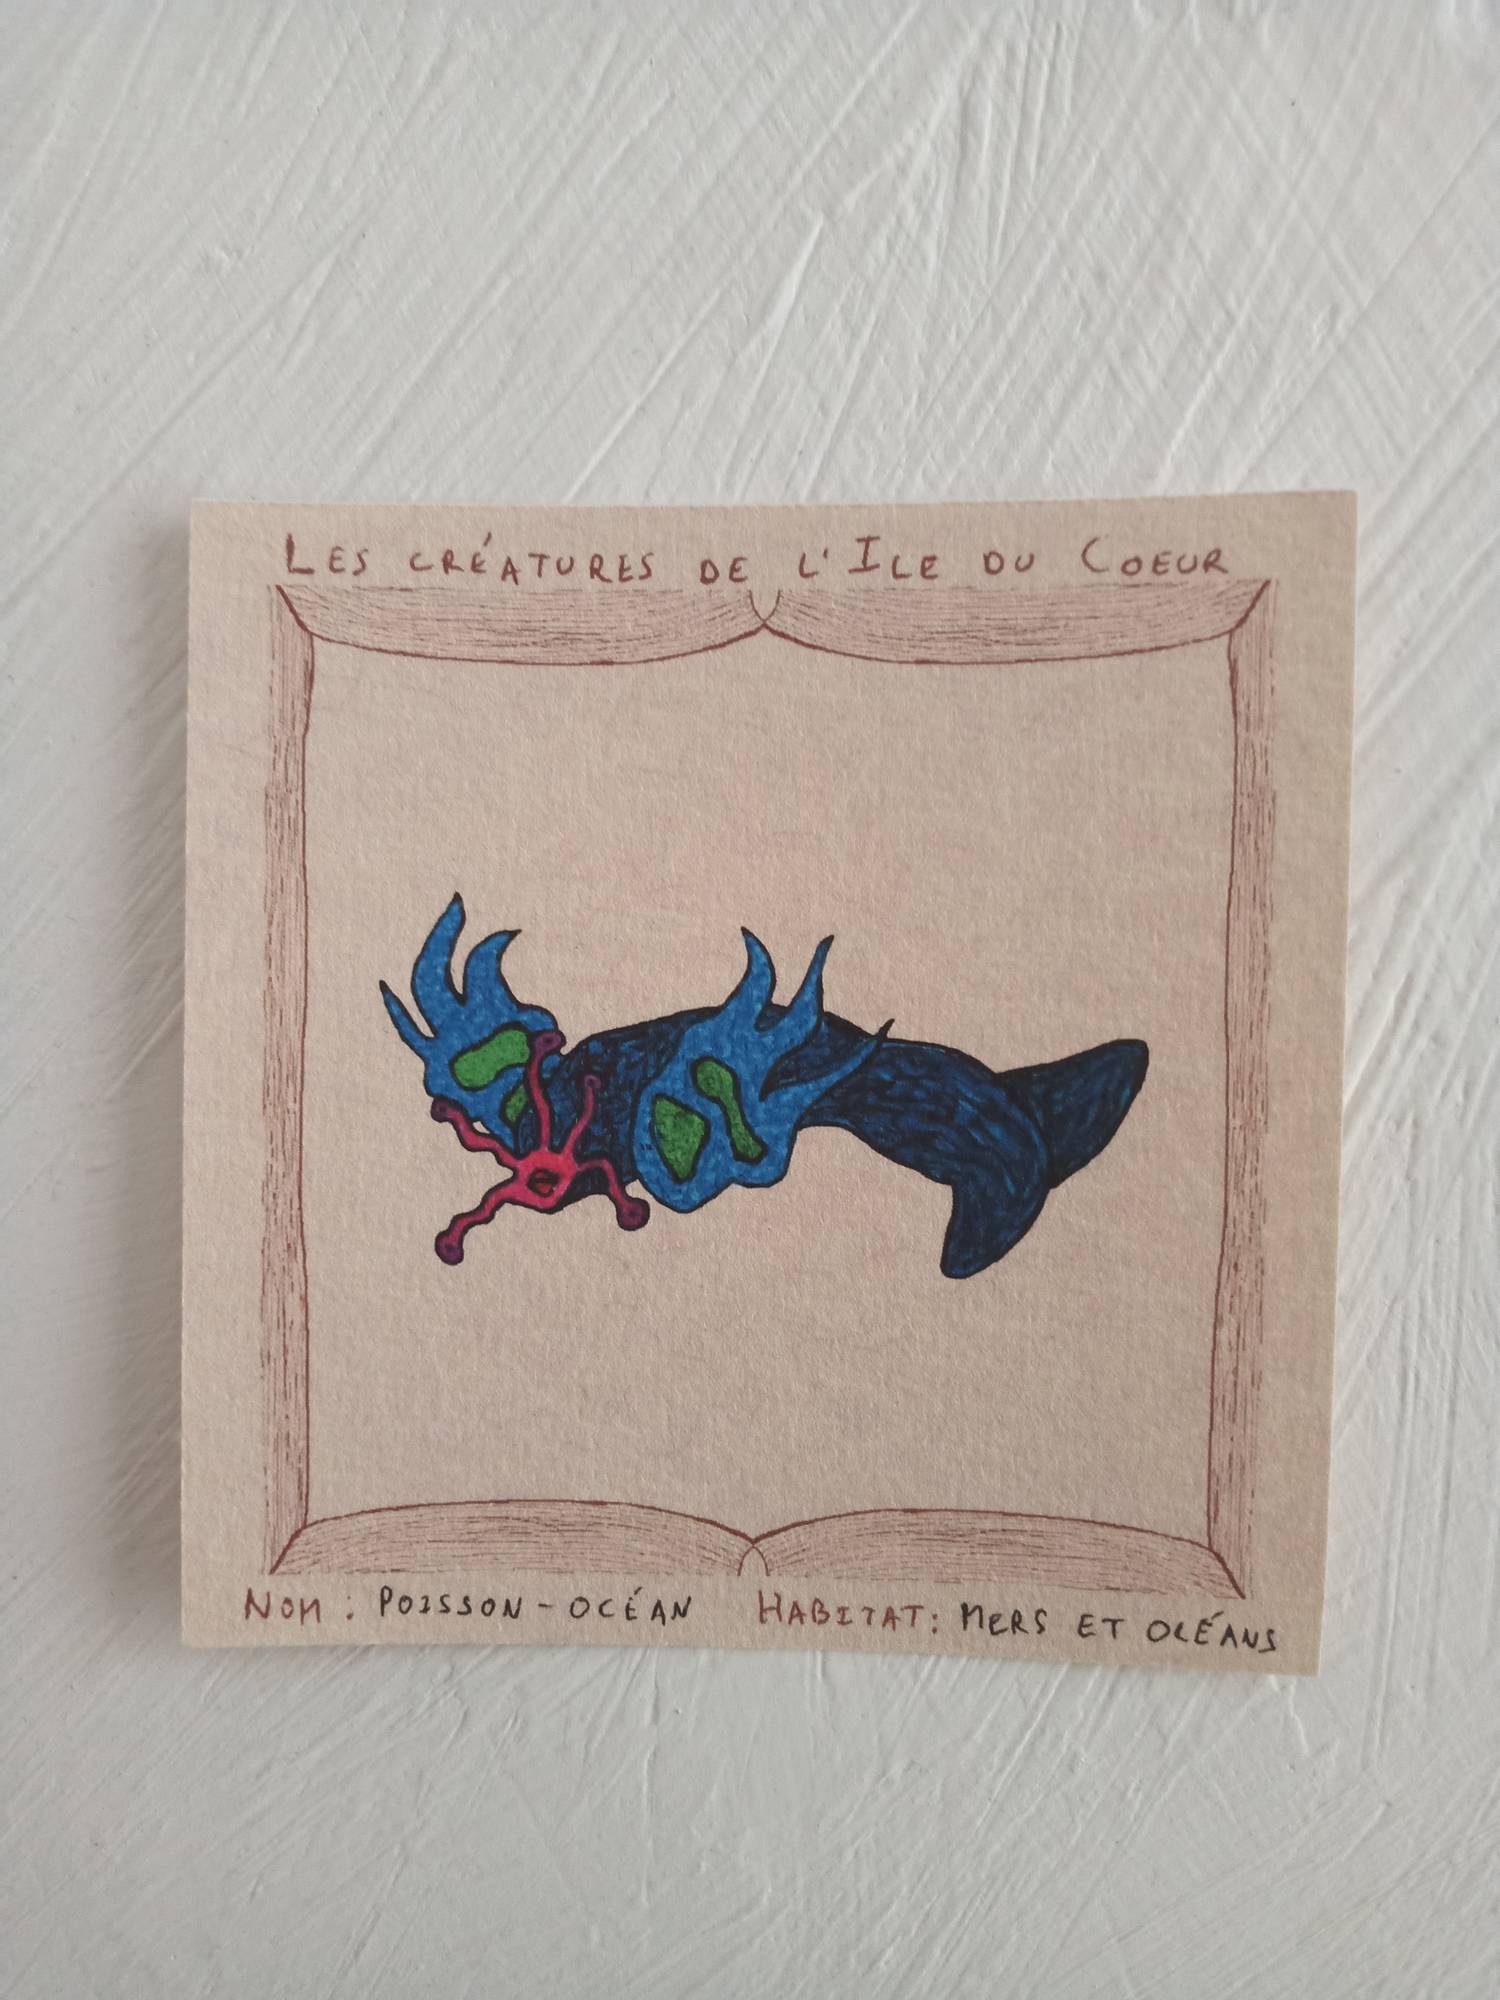 LES CRÉATURES DE L'ILE DU COEUR
NOM : POISSON-OCÉAN HABITAT: MERS ET OCÉANS